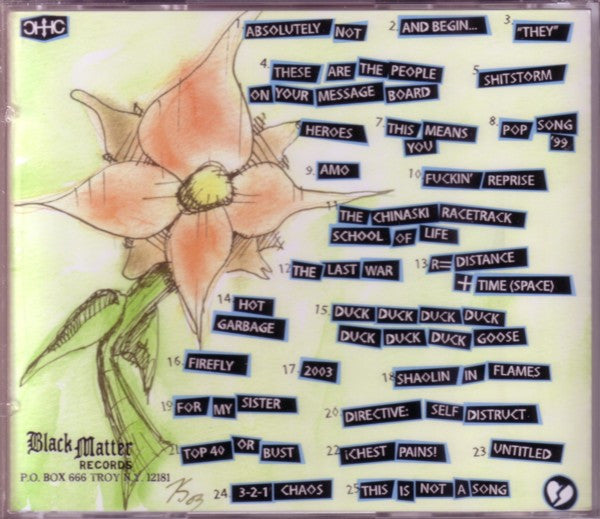 CHHC
1. ABSOLUTELY NOT
2. AND BEGIN...
3. "THEY"
4. THESE ARE THE PEOPLE
ON YOUR MESSAGE BOARD
5. SHITSTORM
6. HEROES
7. THIS MEANS
YOU
8. POP SONG
'99
9. AMO
10. FUCKIN' REPRISE
11. THE CHINASKI RACETRACK
SCHOOL OF LIFE
12. THE LAST WAR
13. R= DISTANCE
+ TIME (SPACE)
14. HOT
GARBAGE
15. DUCK DUCK DUCK DUCK
DUCK DUCK DUCK GOOSE
16. FIREFLY
17. 2003
18. SHAOLIN IN FLAMES
19. FOR MY SISTER
20. DIRECTIVE: SELF DISTRUCT.
21. TOP 40 OR BUST
22. ¡CHEST PAINS!
23. UNTITLED
24. 3-2-1 CHAOS
25. THIS IS NOT A SONG
Black Matter
RECORDS
P.O. BOX 666 TROY N.Y. 12181